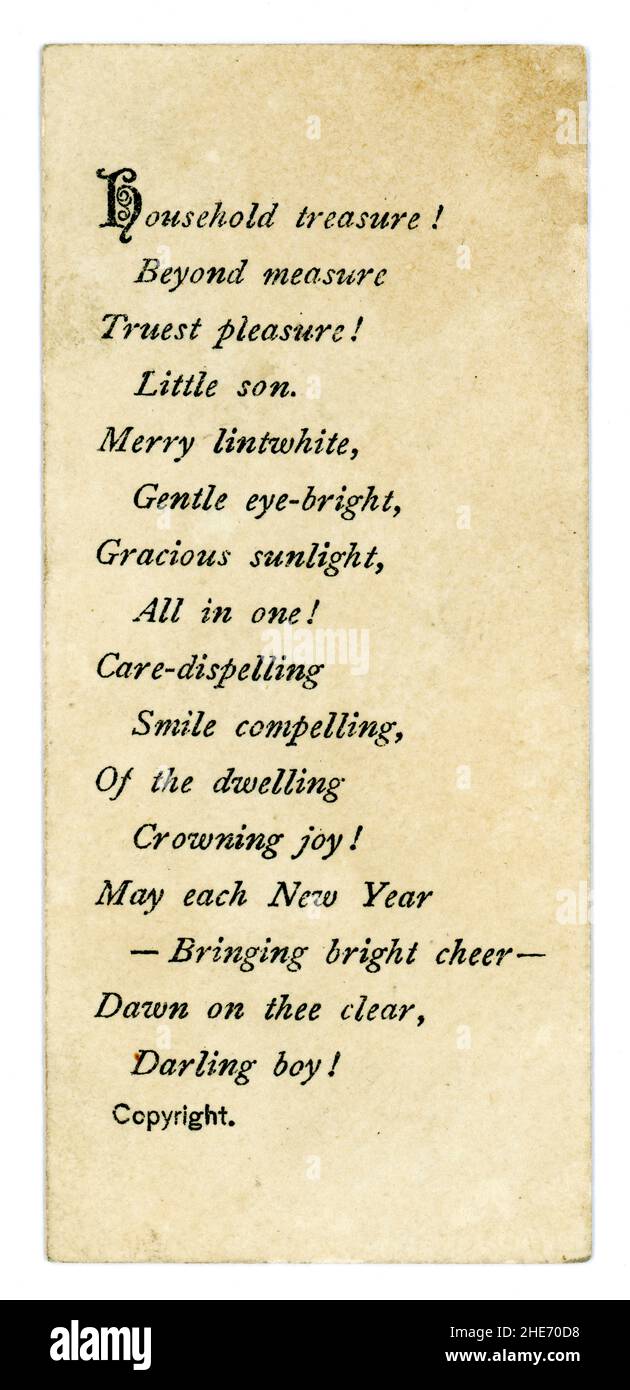 Household treasure!
Beyond measure
Truest pleasure!
Little son.
Merry lintwhite,
Gentle eye-bright,
Gracious sunlight,
All in one!
Care-dispelling
Smile compelling,
Of the dwelling
Crowning joy!
May each New Year
— Bringing bright cheer —
Dawn on thee clear,
Darling boy!
Copyright.
a
a
a
a
a
a
alamy
a
a
a
a
a
alamy
Image ID: 2HE70D8
www.alamy.com